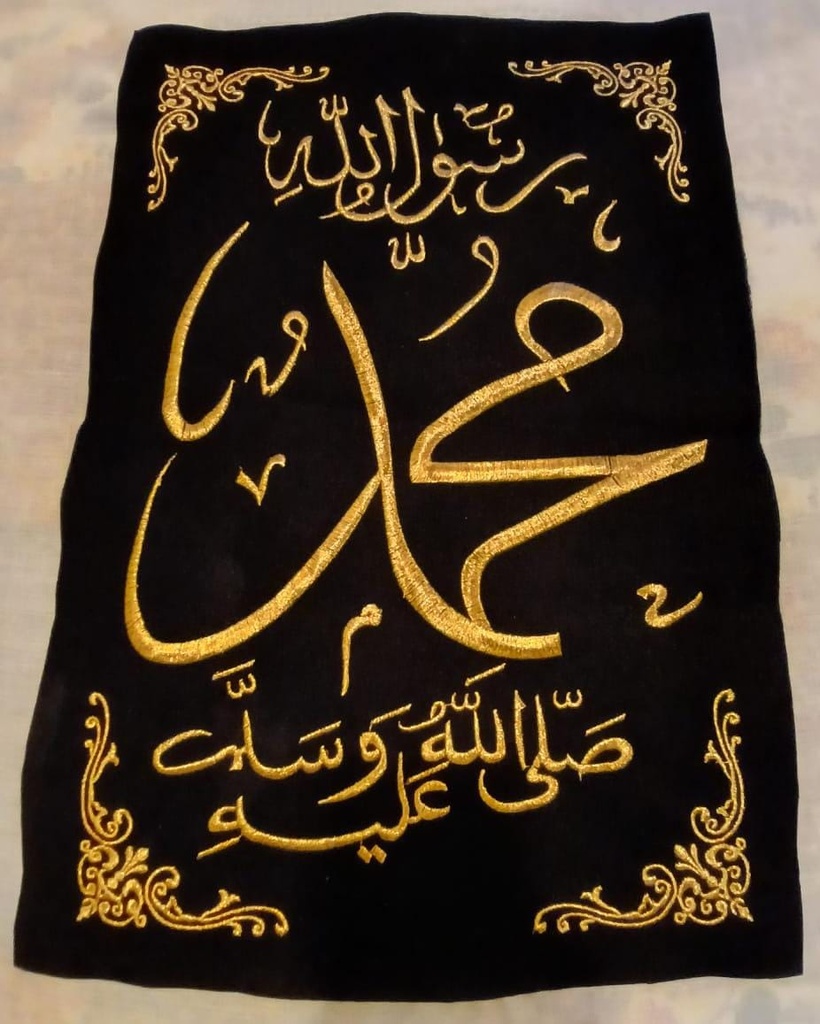 رسول الله
محمد
صَلَّى اللَّهُ عَلَيْهِ وَسَلَّمَ